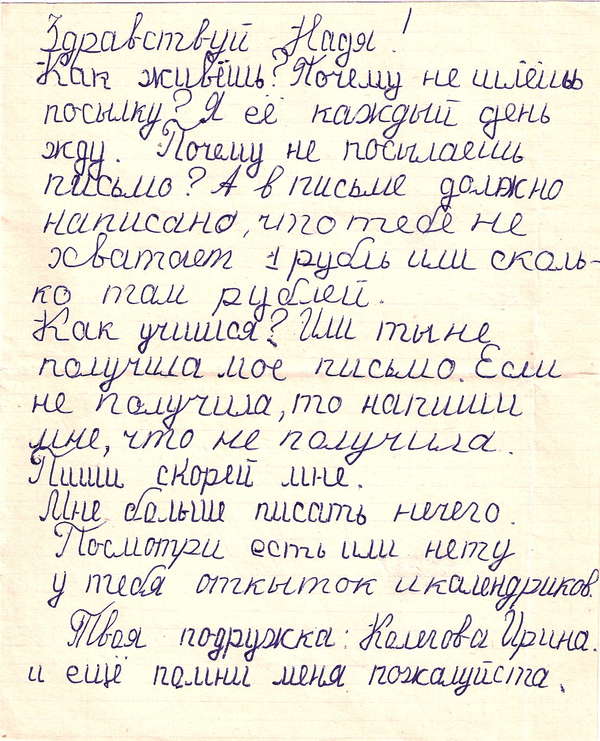 Здравствуй Надя!
Как живёшь? Почему не шлёшь
посылку? Я её каждый день
жду. Почему не посылаешь
письмо? А в письме должно
написано, что тебе не
хватает 1 рубль или сколь-
ко там рублей.
Как учишся? Или ты не
получила мое письмо. Если
не получила, то напиши
мне, что не получила.
Пиши скорей мне.
Мне больше писать нечего.
Посмотри есть или нету
у тебя откыток и календриков.
Твоя подружка: Колегова Ирина.
и ещё помни меня пожалуйста.